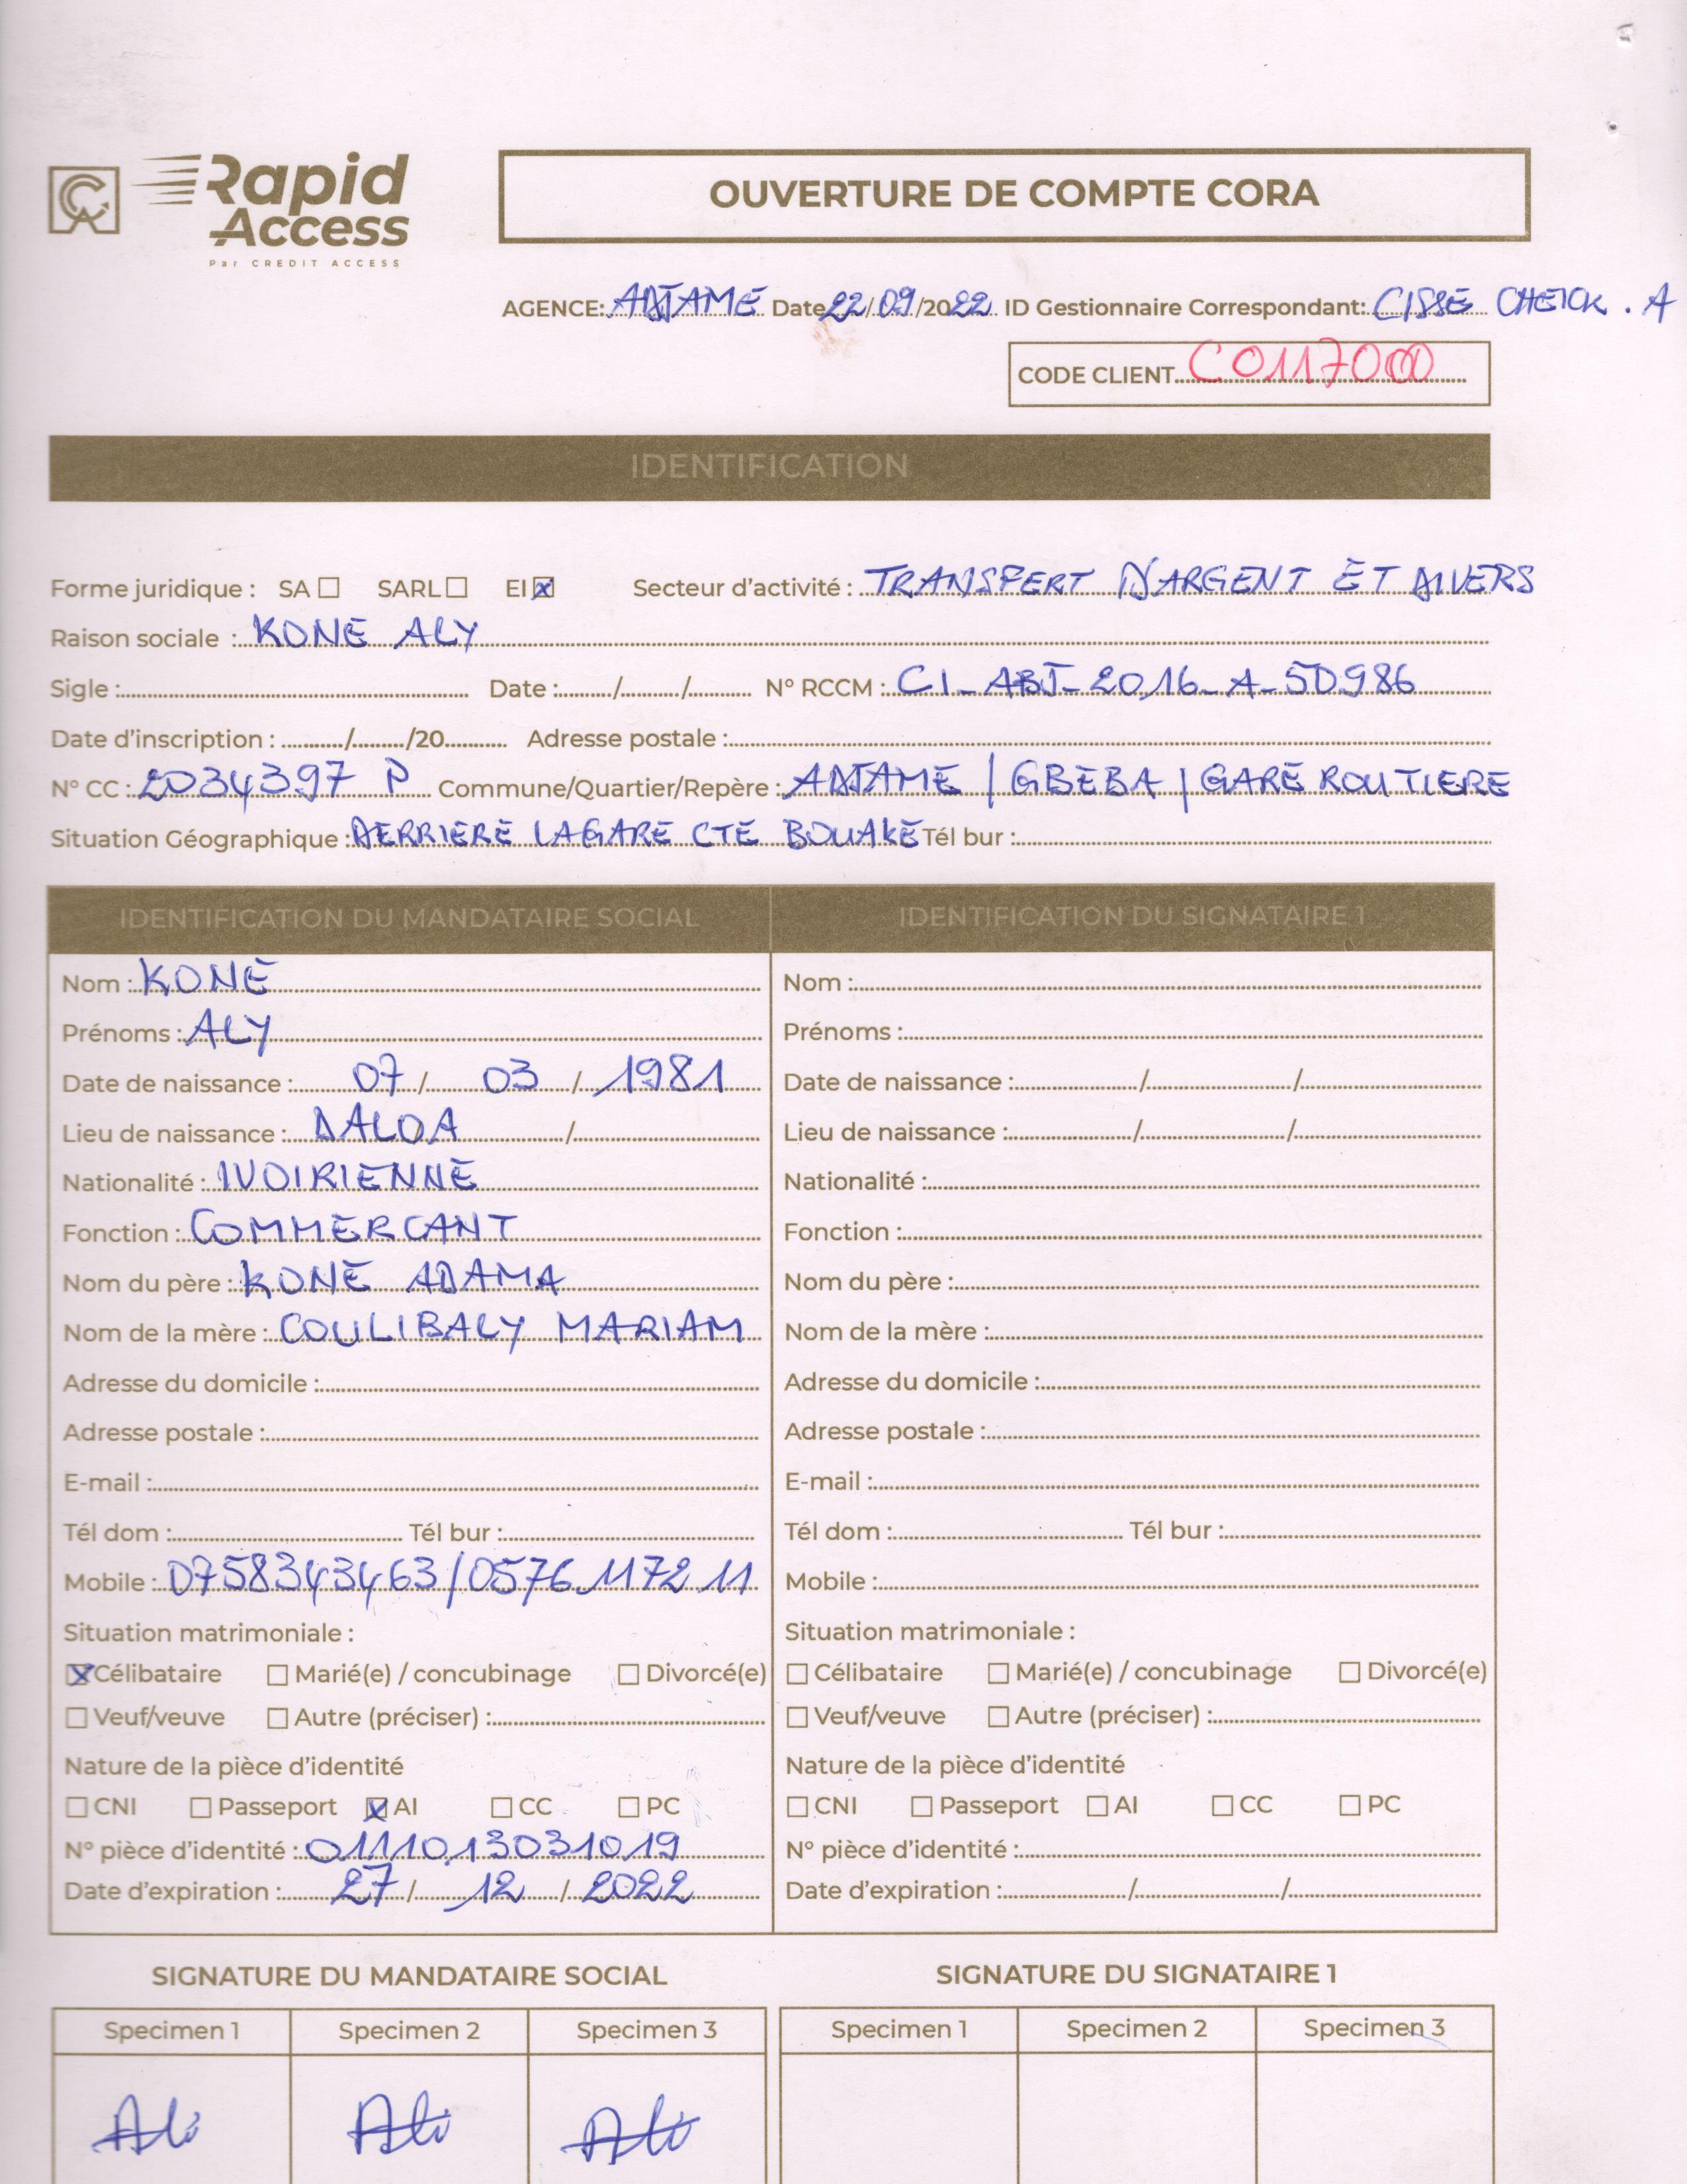 Rapid
Access
Par CREDIT ACCESS
OUVERTURE DE COMPTE CORA
AGENCE: ADJAMÉ Date 22/09/2022 ID Gestionnaire Correspondant: CISSE CHEICK . A
CODE CLIENT C0117000
IDENTIFICATION
Forme juridique : SA ☐ SARL ☐ EI ☒ Secteur d'activité : TRANSFERT D'ARGENT ET DIVERS
Raison sociale : KONE ALY
Sigle : Date : / / N° RCCM : CI-ABJ-2016-A-5D986
Date d'inscription : / /20 Adresse postale :
N° CC : 2034397 P Commune/Quartier/Repère : ADJAMÉ | GBEBA | GARE ROUTIERE
Situation Géographique : DERRIERE LA GARE CTE BOUAKÉ Tél bur :
IDENTIFICATION DU MANDATAIRE SOCIAL IDENTIFICATION DU SIGNATAIRE 1
Nom : KONÉ Nom :
Prénoms : ALY Prénoms :
Date de naissance : 07 / 03 / 1981 Date de naissance : / /
Lieu de naissance : DALOA / Lieu de naissance : / /
Nationalité : IVOIRIENNE Nationalité :
Fonction : COMMERCANT Fonction :
Nom du père : KONÉ ADAMA Nom du père :
Nom de la mère : COULIBALY MARIAM Nom de la mère :
Adresse du domicile : Adresse du domicile :
Adresse postale : Adresse postale :
E-mail : E-mail :
Tél dom : Tél bur : Tél dom : Tél bur :
Mobile : 0758343463/0576117211 Mobile :
Situation matrimoniale : Situation matrimoniale :
☒ Célibataire ☐ Marié(e) / concubinage ☐ Divorcé(e) ☐ Célibataire ☐ Marié(e) / concubinage ☐ Divorcé(e)
☐ Veuf/veuve ☐ Autre (préciser) : ☐ Veuf/veuve ☐ Autre (préciser) :
Nature de la pièce d'identité Nature de la pièce d'identité
☐ CNI ☐ Passeport ☒ AI ☐ CC ☐ PC ☐ CNI ☐ Passeport ☐ AI ☐ CC ☐ PC
N° pièce d'identité : 0111013031019 N° pièce d'identité :
Date d'expiration : 27 / 12 / 2022 Date d'expiration : / /
SIGNATURE DU MANDATAIRE SOCIAL SIGNATURE DU SIGNATAIRE 1
Specimen 1 Specimen 2 Specimen 3 Specimen 1 Specimen 2 Specimen 3
Ali Ali Ali